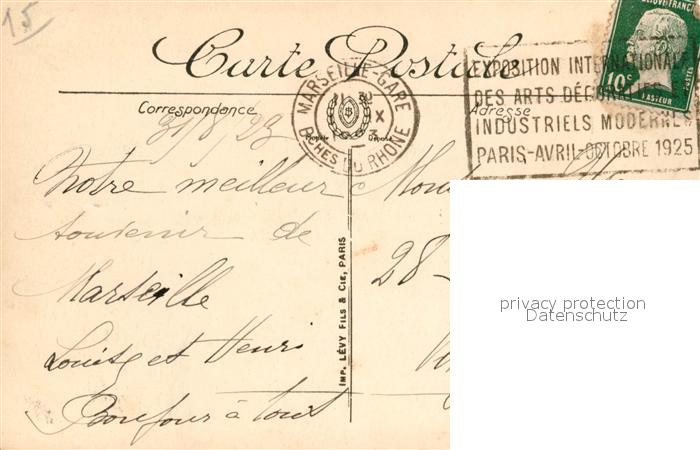 15
Carte Postale
Correspondance
Adresse
MARSEILLE-GARE
30
X
BCHES DU RHONE
RÉPUBLIQUE FRANÇAISE
10c
PASTEUR
EXPOSITION INTERNATIONALE
DES ARTS DÉCORATIFS
INDUSTRIELS MODERNES
PARIS-AVRIL-OCTOBRE 1925
31/8/23
Notre meilleur
souvenir de
Marseille
Louise et Henri
Bonjour à tous
28-
IMP. LÉVY FILS & CIE, PARIS
privacy protection
Datenschutz